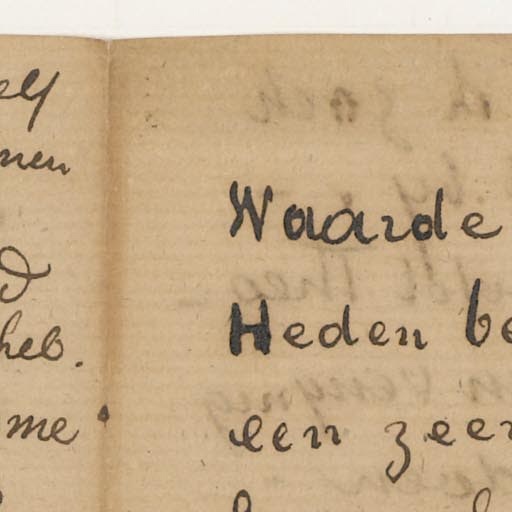 elf
men
d
heb.
me
Waarde
Heden be
een zeer